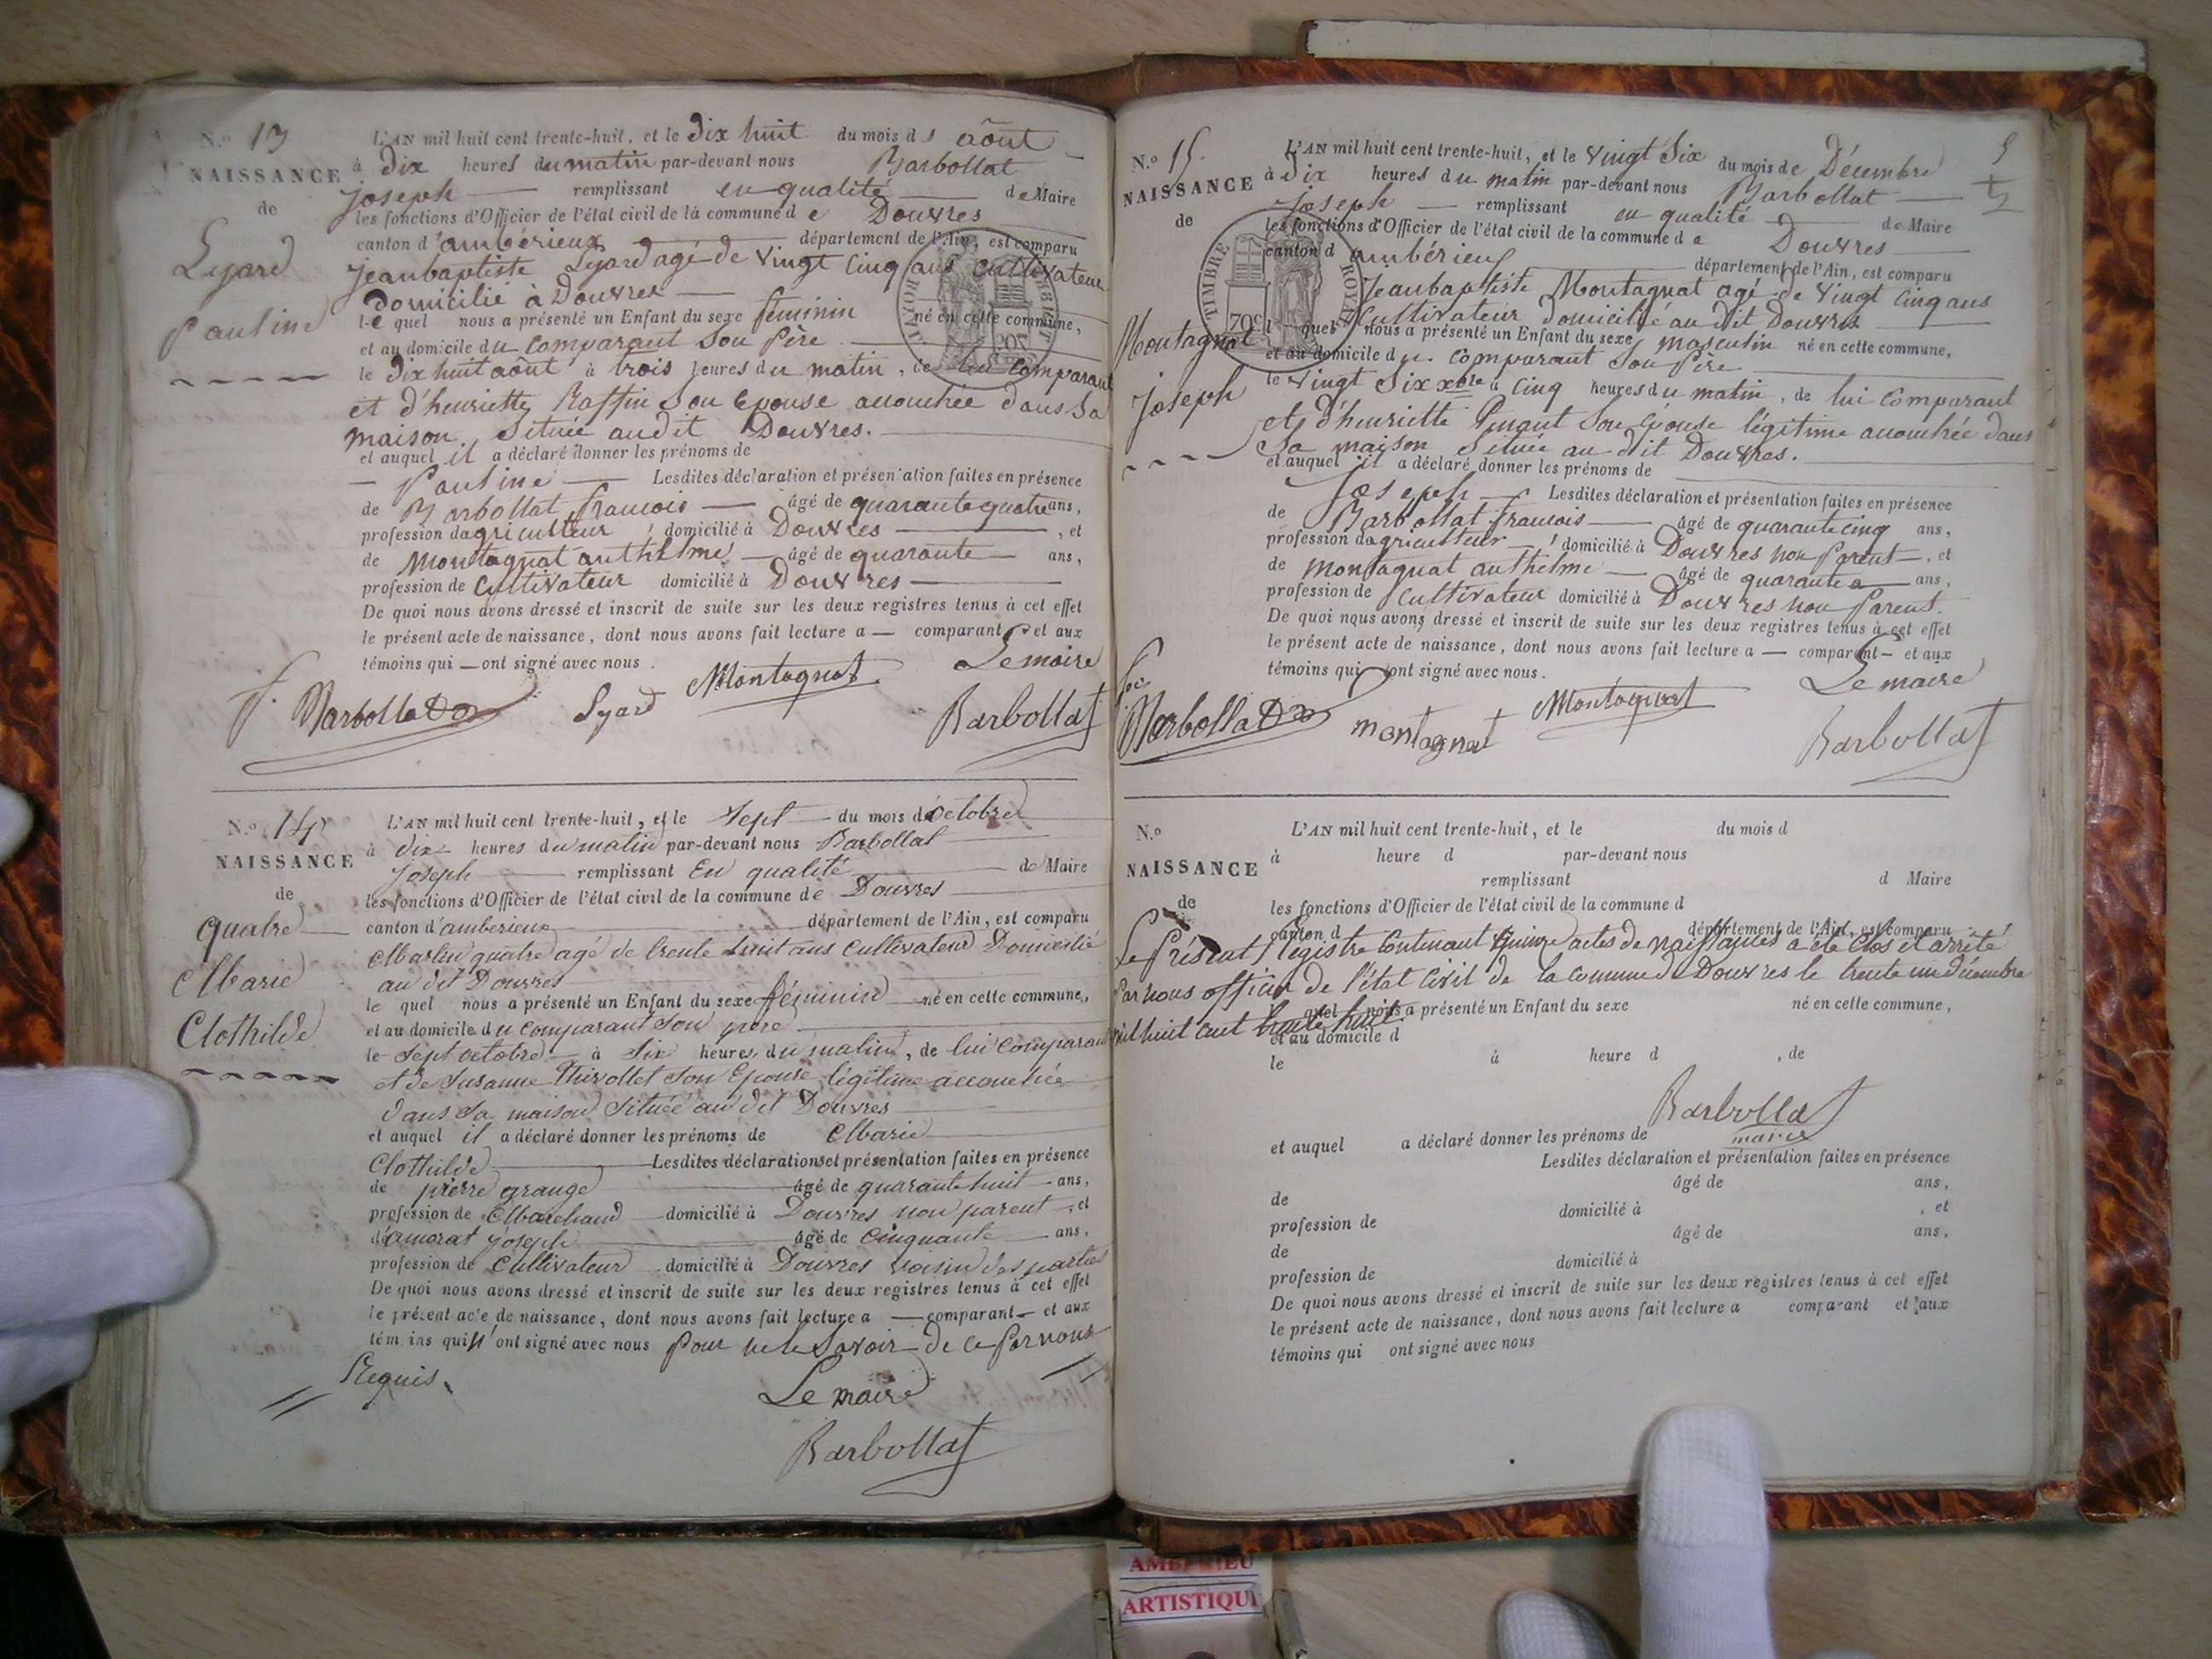 N.º 13
NAISSANCE
de
Lyard
Pauline
L'AN mil huit cent trente-huit, et le dix huit du mois d août
à dix heures du matin par-devant nous Barbollat
joseph remplissant en qualité de Maire
les fonctions d'Officier de l'état civil de la commune de Douvres
canton d'ambérieux département de l'Ain, est comparu
jeanbaptiste Lyard agé de vingt cinq ans cultivateur
domicilié à Douvres
le quel nous a présenté un Enfant du sexe féminin né en cette commune,
et au domicile du comparant son Père
le dix huit août à trois heures du matin, de lui comparant
et d'henriette Raffin son Epouse accouchée dans sa
maison située audit Douvres.
et auquel il a déclaré donner les prénoms de
Pauline Lesdites déclaration et présentation faites en présence
de Barbollat francois âgé de quarante quatre ans,
profession dagriculteur domicilié à Douvres, et
de Montagnat anthelme âgé de quarante ans,
profession de Cultivateur domicilié à Douvres
De quoi nous avons dressé et inscrit de suite sur les deux registres tenus à cet effet
le présent acte de naissance, dont nous avons fait lecture a comparant et aux
témoins qui ont signé avec nous.
Le maire
f. Barbollat Lyard Montagnat Barbollat
N.º 14
NAISSANCE
de
quatre
Marie
Clothilde
L'AN mil huit cent trente-huit, et le Sept du mois d'octobre
à dix heures du matin par-devant nous Barbollat
joseph remplissant En qualité de Maire
les fonctions d'Officier de l'état civil de la commune de Douvres
canton d'amberieux département de l'Ain, est comparu
Martin quatre agé de trente huit ans Cultivateur Domicilié
au dit Douvres
le quel nous a présenté un Enfant du sexe féminin né en cette commune,
et au domicile du comparant son père
le sept octobre à six heures du matin, de lui comparant
et de Susanne thivollet son Epouse légitime accouchée
dans sa maison située au dit Douvres
et auquel il a déclaré donner les prénoms de Marie
Clothilde Lesdites déclarations et présentation faites en présence
de pierre grange âgé de quarante huit ans,
profession de Marchand domicilié à Douvres non parent, et
d'amorat joseph âgé de Cinquante ans,
profession de Cultivateur domicilié à Douvres voisin des parties
De quoi nous avons dressé et inscrit de suite sur les deux registres tenus à cet effet
le présent acte de naissance, dont nous avons fait lecture a comparant et aux
témoins qui n'ont signé avec nous pour ne le savoir de ce par nous
Requis
Le maire
Barbollat
N.º 15.
NAISSANCE
de
Montagnat
joseph
L'AN mil huit cent trente-huit, et le vingt Six du mois de Décembre
à dix heures du matin par-devant nous Barbollat
joseph remplissant en qualité de Maire
les fonctions d'Officier de l'état civil de la commune de Douvres
canton d ambérieux département de l'Ain, est comparu
Jeanbaptiste Montagnat agé de vingt cinq ans
Cultivateur domicilié au dit Douvres
quel nous a présenté un Enfant du sexe masculin né en cette commune,
et au domicile du comparant son Père
le vingt Six xbre à cinq heures du matin, de lui comparant
et d'henriette son Epouse légitime accouchée dans
Sa maison située au dit Douvres.
et auquel il a déclaré donner les prénoms de
Joseph Lesdites déclaration et présentation faites en présence
de Barbollat francois âgé de quarante cinq ans,
profession dagriculteur domicilié à Douvres non parent, et
de montagnat anthelme âgé de quarante ans,
profession de cultivateur domicilié à Douvres non Parent.
De quoi nous avons dressé et inscrit de suite sur les deux registres tenus à cet effet
le présent acte de naissance, dont nous avons fait lecture a comparant et aux
témoins qui ont signé avec nous.
Le maire
Barbollat montagnat Montagnat Barbollat
TIMBRE ROYAL
70c
N.º
NAISSANCE
de
L'AN mil huit cent trente-huit, et le du mois d
à heure d par-devant nous
remplissant d Maire
les fonctions d'Officier de l'état civil de la commune d
canton d département de l'Ain, est comparu
Le Présent Registre Contenant quinze actes de naissances a été Clos et arrêté
Par nous officier de l'état civil de la commune de Douvres le trente un décembre
quel nous a présenté un Enfant du sexe né en cette commune,
mil huit cent trente huit.
et au domicile d
le à heure d , de
Barbollat
maire
et auquel a déclaré donner les prénoms de
Lesdites déclaration et présentation faites en présence
de âgé de ans,
profession de domicilié à , et
de âgé de ans,
profession de domicilié à
De quoi nous avons dressé et inscrit de suite sur les deux registres tenus à cet effet
le présent acte de naissance, dont nous avons fait lecture a comparant et aux
témoins qui ont signé avec nous
ARTISTIQU